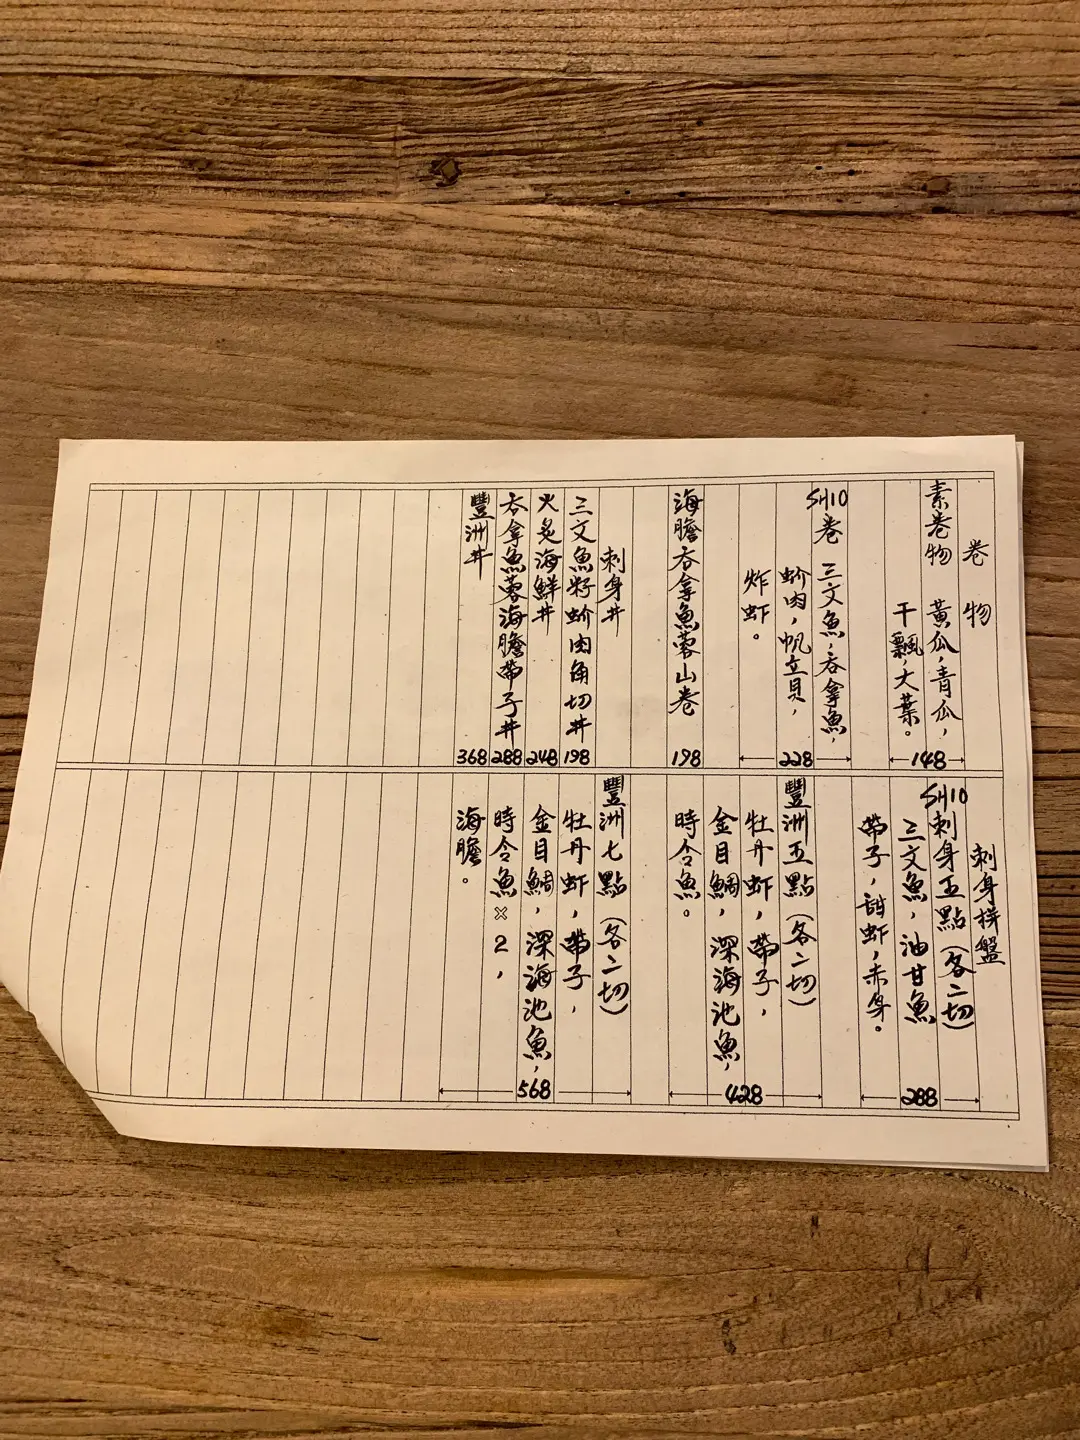 卷物
素卷物 黃瓜,青瓜,
干瓢,大葉。
148
SH10卷 三文魚,吞拿魚,
蚧肉,帆立貝,
炸虾。
228
海膽吞拿魚蓉山卷
198
刺身丼
三文魚籽蚧肉角切丼 198
火炙海鮮丼 248
吞拿魚蓉海膽帶子丼 288
豐洲丼 368
刺身拼盤
SH10刺身五點(各二切)
三文魚,油甘魚
帶子,甜虾,赤身。
288
豐洲五點(各二切)
牡丹虾,帶子,
金目鯛,深海池魚,
時令魚。
428
豐洲七點(各二切)
牡丹虾,帶子,
金目鯛,深海池魚,
時令魚×2,
海膽。
568